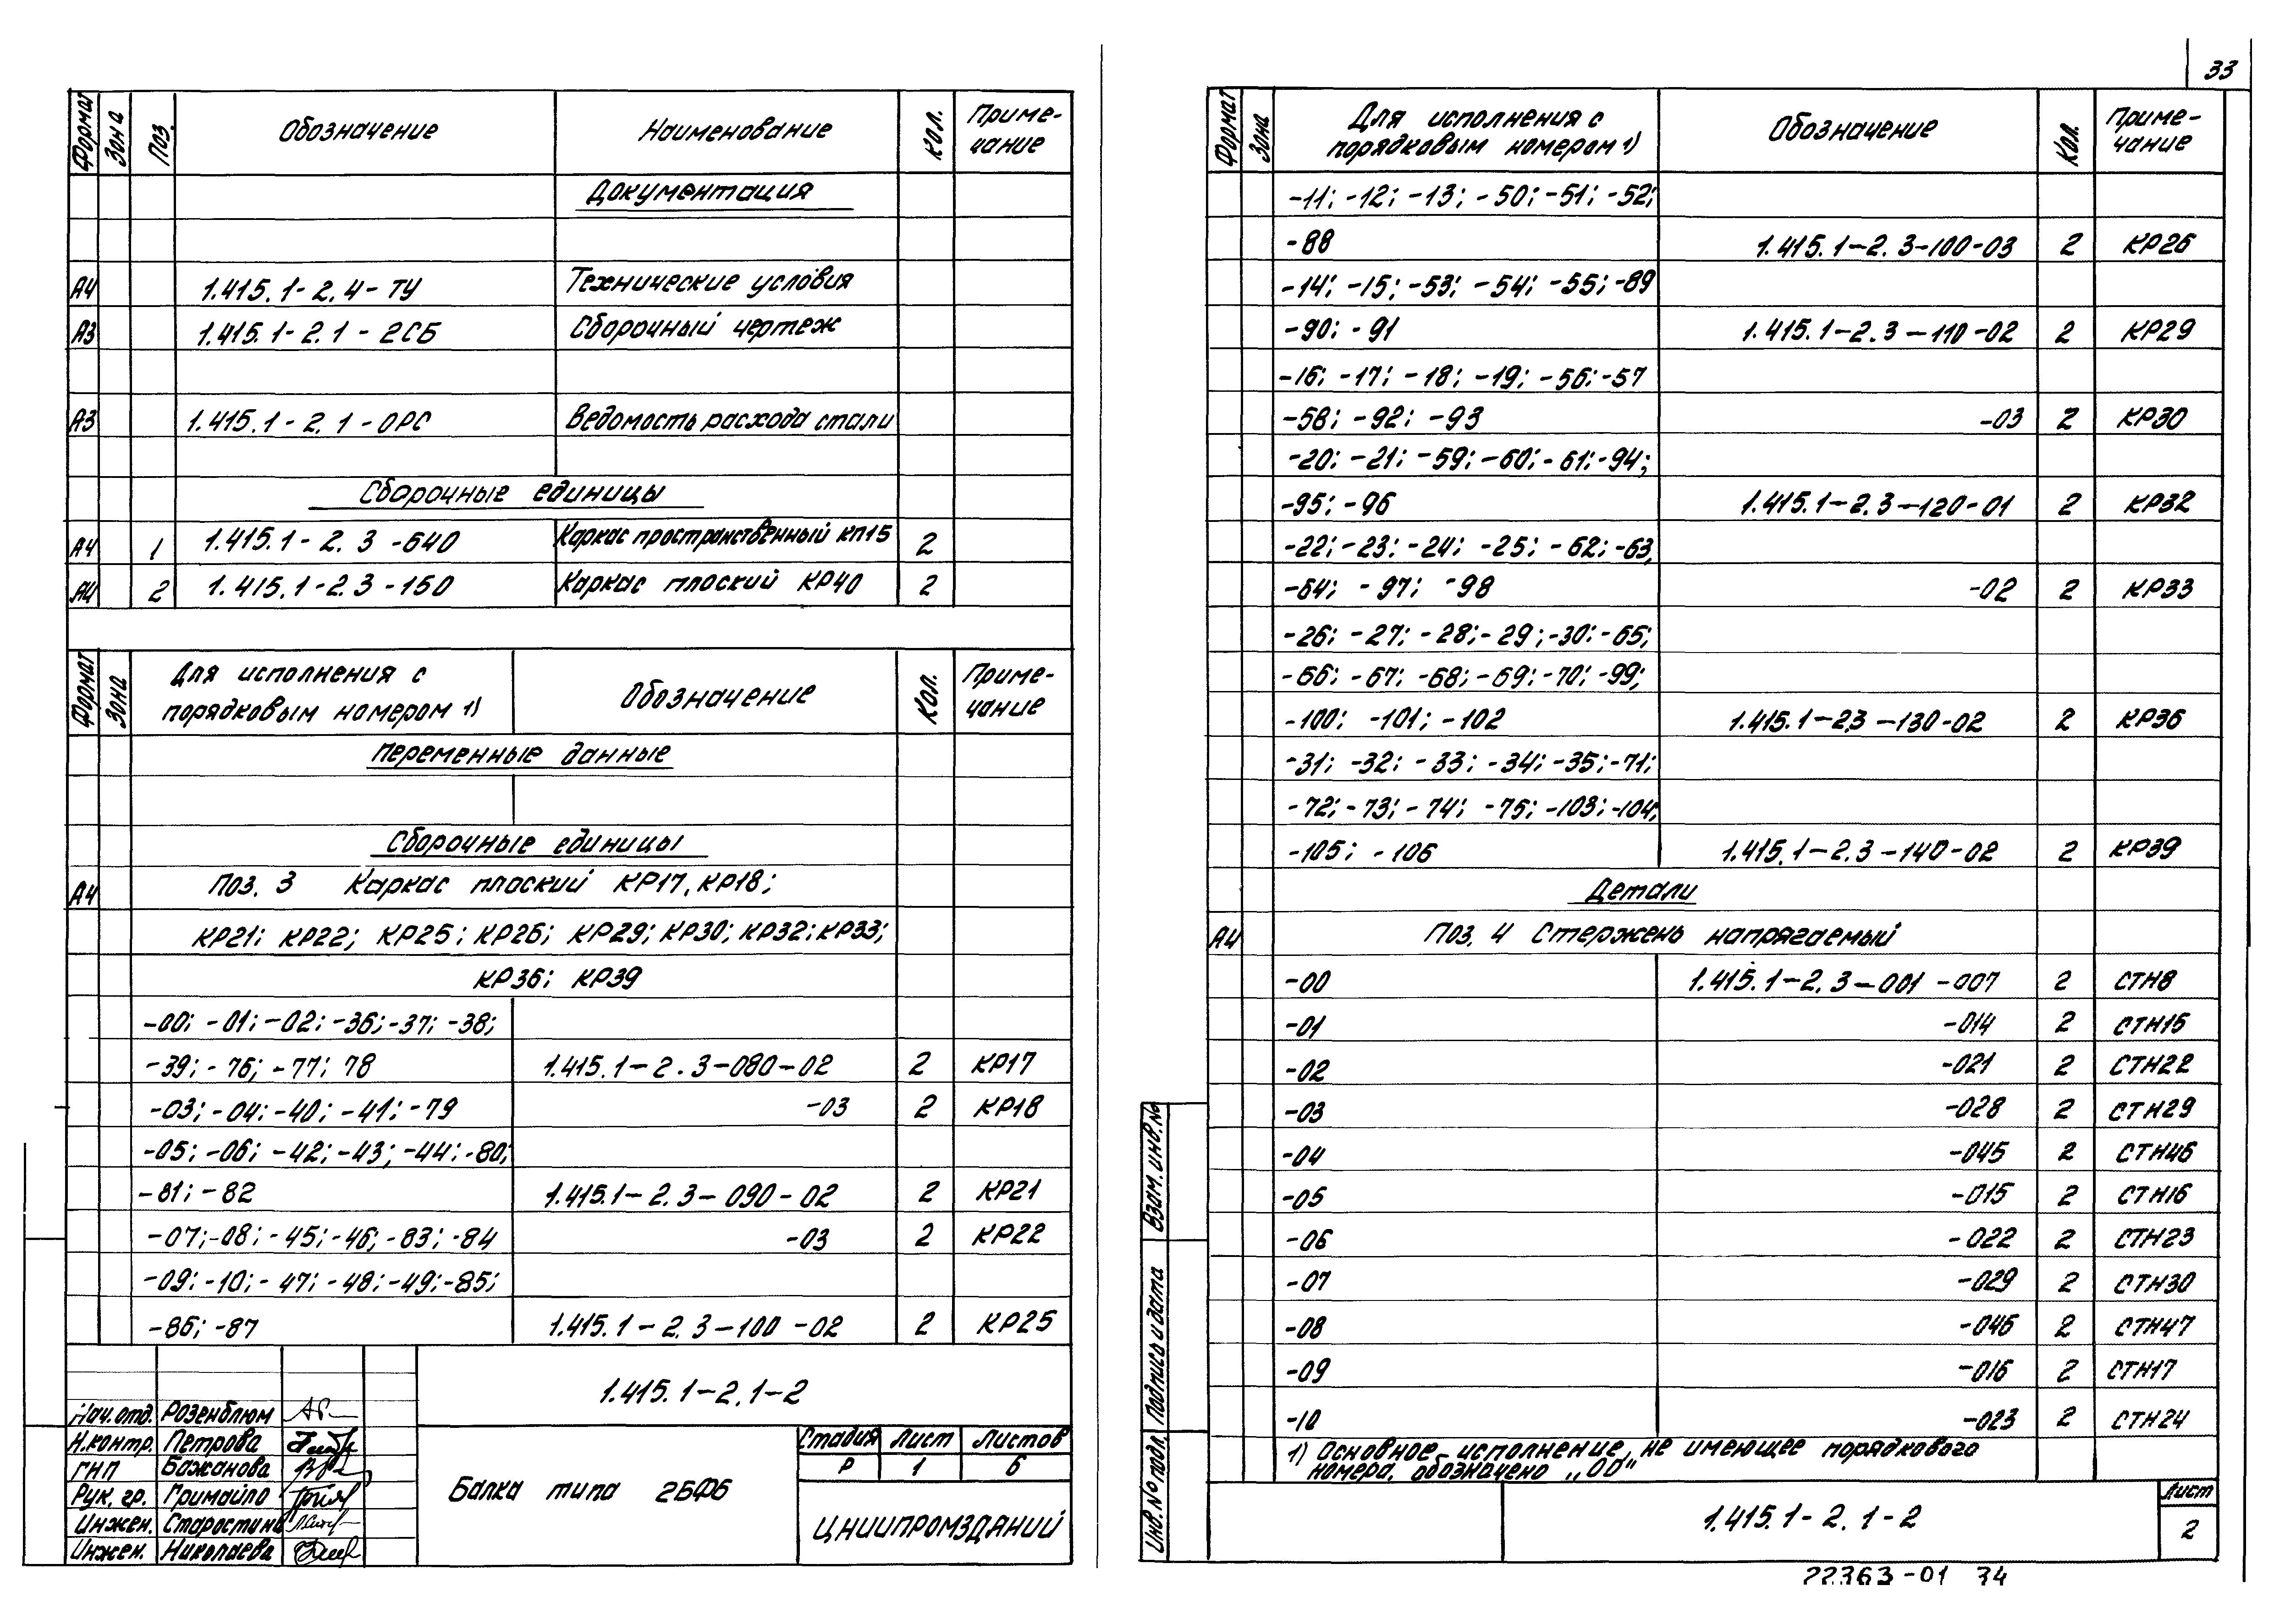 33
Формат Зона Поз. Обозначение Наименование Кол. Приме-
чание
Документация
А4 1.415.1-2.4-ТУ Технические условия
А3 1.415.1-2.1-2СБ Сборочный чертеж
А3 1.415.1-2.1-0РС Ведомость расхода стали
Сборочные единицы
А4 1 1.415.1-2.3-640 Каркас пространственный КП15 2
А4 2 1.415.1-2.3-150 Каркас плоский КР40 2
Формат Зона Для исполнения с Обозначение Кол. Приме-
порядковым номером 1) чание
Переменные данные
Сборочные единицы
А4 Поз. 3 Каркас плоский КР17, КР18;
КР21; КР22; КР25; КР26; КР29; КР30; КР32; КР33;
КР36; КР39
-00; -01; -02; -36; -37; -38;
-39; -76; -77; 78 1.415.1-2.3-080-02 2 КР17
-03; -04; -40; -41; -79 -03 2 КР18
-05; -06; -42; -43; -44; -80;
-81; -82 1.415.1-2.3-090-02 2 КР21
-07; -08; -45; -46; -83; -84 -03 2 КР22
-09; -10; -47; -48; -49; -85;
-86; -87 1.415.1-2.3-100-02 2 КР25
1.415.1-2.1-2
Нач.отд. Розенблюм
Н.контр. Петрова
ГНП Бажанова
Рук. гр. Гримайло
Инжен. Старостина
Инжен. Николаева
Балка типа 2БФ6
Стадия Лист Листов
Р 1 6
ЦНИИПРОМЗДАНИЙ
Формат Зона Для исполнения с Обозначение Кол. Приме-
порядковым номером 1) чание
-11; -12; -13; -50; -51; -52;
-88 1.415.1-2.3-100-03 2 КР26
-14; -15; -53; -54; -55; -89
-90; -91 1.415.1-2.3-110-02 2 КР29
-16; -17; -18; -19; -56; -57
-58; -92; -93 -03 2 КР30
-20; -21; -59; -60; -61; -94;
-95; -96 1.415.1-2.3-120-01 2 КР32
-22; -23; -24; -25; -62; -63,
-64; -97; -98 -02 2 КР33
-26; -27; -28; -29; -30; -65;
-66; -67; -68; -69; -70; -99;
-100; -101; -102 1.415.1-2.3-130-02 2 КР36
-31; -32; -33; -34; -35; -71;
-72; -73; -74; -75; -103; -104;
-105; -106 1.415.1-2.3-140-02 2 КР39
Детали
А4 Поз. 4 Стержень напрягаемый
-00 1.415.1-2.3-001-007 2 СТН8
-01 -014 2 СТН15
-02 -021 2 СТН22
-03 -028 2 СТН29
-04 -045 2 СТН46
-05 -015 2 СТН16
-06 -022 2 СТН23
-07 -029 2 СТН30
-08 -046 2 СТН47
-09 -016 2 СТН17
-10 -023 2 СТН24
1) Основное исполнение, не имеющее порядкового
номера, обозначено „00"
Взам. инв. №
Подпись и дата
Инв. № подл.
1.415.1-2.1-2
Лист
2
22363-01 34